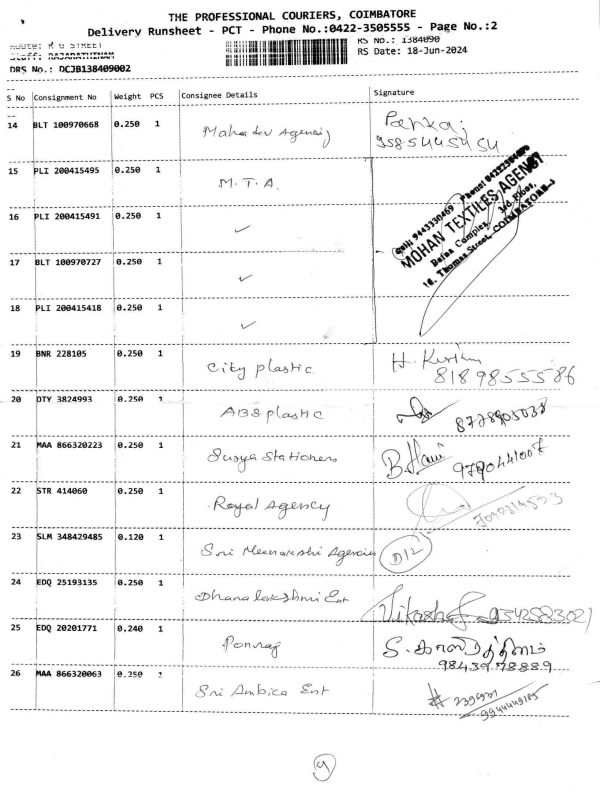 THE PROFESSIONAL COURIERS, COIMBATORE
Delivery Runsheet - PCT - Phone No.:0422-3505555 - Page No.:2
Route: R G STREET RS No.: 1384090
Staff: RAJARATHINAM RS Date: 18-Jun-2024
DRS No.: DCJB138409002
S No Consignment No Weight PCS Consignee Details Signature
14 BLT 100970668 0.250 1 Mahadev Agency Pankaj
9585445454
15 PLI 200415495 0.250 1 M.T.A.
Cell: 9443330469 Phone:
MOHAN TEXTILES AGENCY
Bafna Complex, Floor,
Thomas Street, COIMBATORE-1
16 PLI 200415491 0.250 1 ✓
17 BLT 100970727 0.250 1 ✓
18 PLI 200415418 0.250 1 ✓
19 BNR 228105 0.250 1 City plastic H.
8189855586
20 OTY 3824993 0.250 1 ABS plastic
21 MAA 866320223 0.250 1 Surya Stationers B. Hari
9790441007
22 STR 414060 0.250 1 Royal Agency
23 SLM 348429485 0.120 1 Sri Meenakshi Agencies D12
24 EDQ 25193135 0.250 1 Dhanalakshmi Ent Vikash
9542583021
25 EDQ 20201771 0.240 1 Ponraj S.
9843978889
26 MAA 866320063 0.250 1 Sri Ambica Ent
9944449185
9